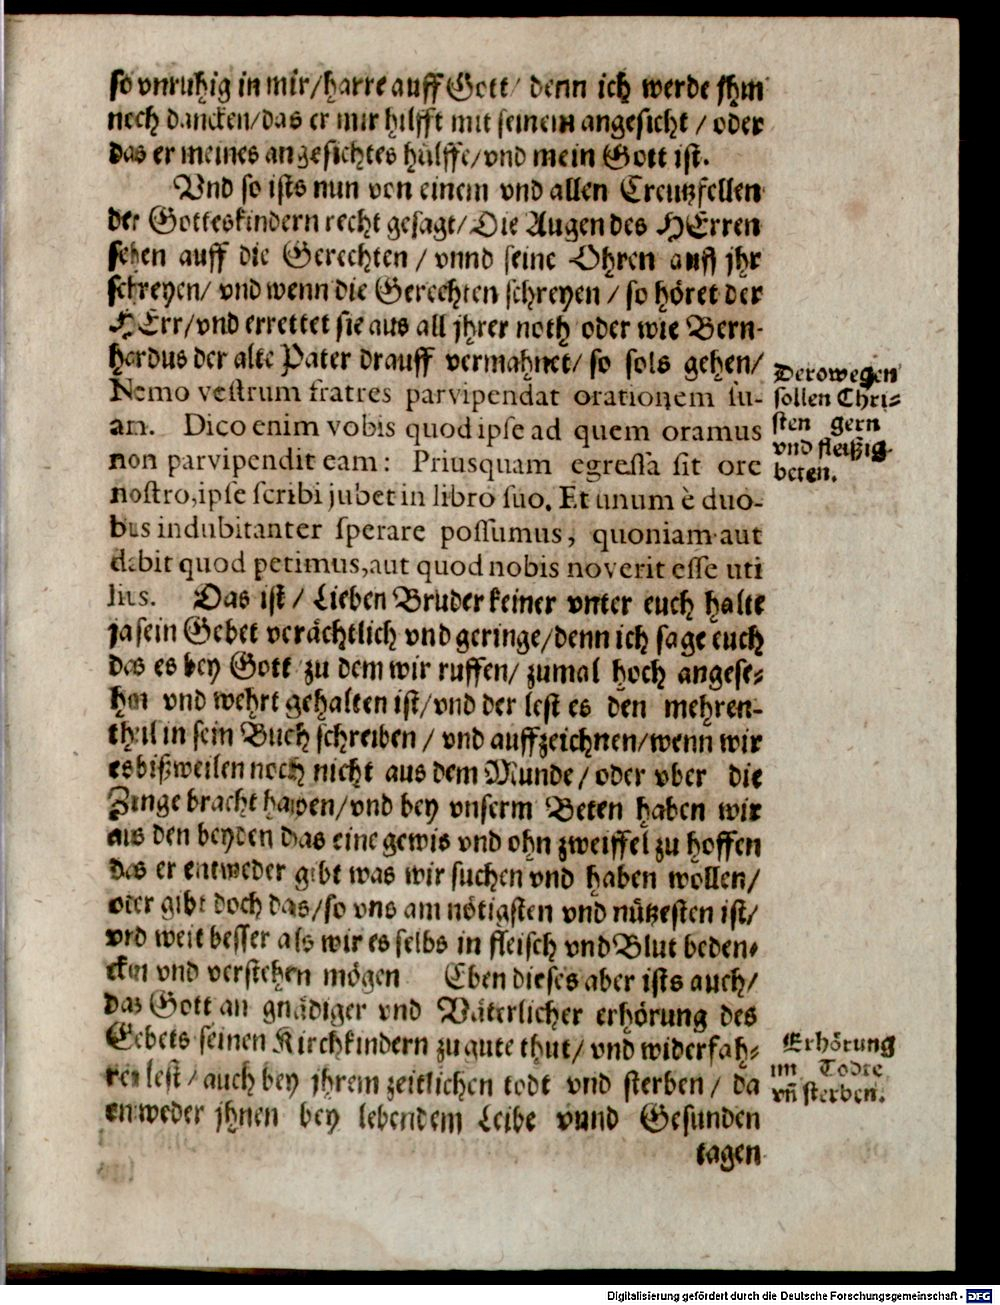 so vnruhig in mir/harre auff Gott/ denn ich werde jhm
noch dancken/das er mir hilfft mit seinem angesicht / oder
das er meines angesichtes hülffe/vnd mein Gott ist.
Vnd so ists nun von einem vnd allen Creutzfellen
der Gotteskindern recht gesagt/ Die Augen des HErren
sehen auff die Gerechten / vnnd seine Ohren auff jhr
schreyen/ vnd wenn die Gerechten schreyen / so höret der
HErr/vnd errettet sie aus all jhrer noth oder wie Bern-
hardus der alte Pater drauff vermahnet/ so sols gehen/
Nemo vestrum fratres parvipendat orationem su-
am. Dico enim vobis quod ipse ad quem oramus
non parvipendit eam: Priusquam egressa sit ore
nostro,ipse scribi jubet in libro suo. Et unum è duo-
bus indubitanter sperare possumus, quoniam aut
dabit quod petimus,aut quod nobis noverit esse uti
lius. Das ist / Lieben Brüder keiner vnter euch halte
ja sein Gebet verächtlich vnd geringe/denn ich sage euch
das es bey Gott zu dem wir ruffen/ zumal hoch angese-
hen vnd wehrt gehalten ist/vnd der lest es den mehren-
theil in sein Buch schreiben / vnd auffzeichnen/wenn wir
es bißweilen noch nicht aus dem Munde/ oder vber die
Zunge bracht haben/vnd bey vnserm Beten haben wir
aus den beyden das eine gewis vnd ohn zweiffel zu hoffen
das er entweder gibt was wir suchen vnd haben wollen/
oder gibt doch das/so vns am nötigsten vnd nützesten ist/
vnd weit besser als wir es selbs in fleisch vnd Blut beden-
cken vnd verstehen mögen Eben dieses aber ists auch/
das Gott an gnädiger vnd Väterlicher erhörung des
Gebets seinen Kirchkindern zu gute thut/ vnd widerfah-
ren lest / auch bey jhrem zeitlichen todt vnd sterben/ da
entweder jhnen bey lebendem Leibe vnnd Gesunden
tagen
Derowegen
sollen Chri-
sten gern
vnd fleißig
beten.
Erhörung
im Todte
vñ sterben.
Digitalisierung gefördert durch die Deutsche Forschungsgemeinschaft - DFG